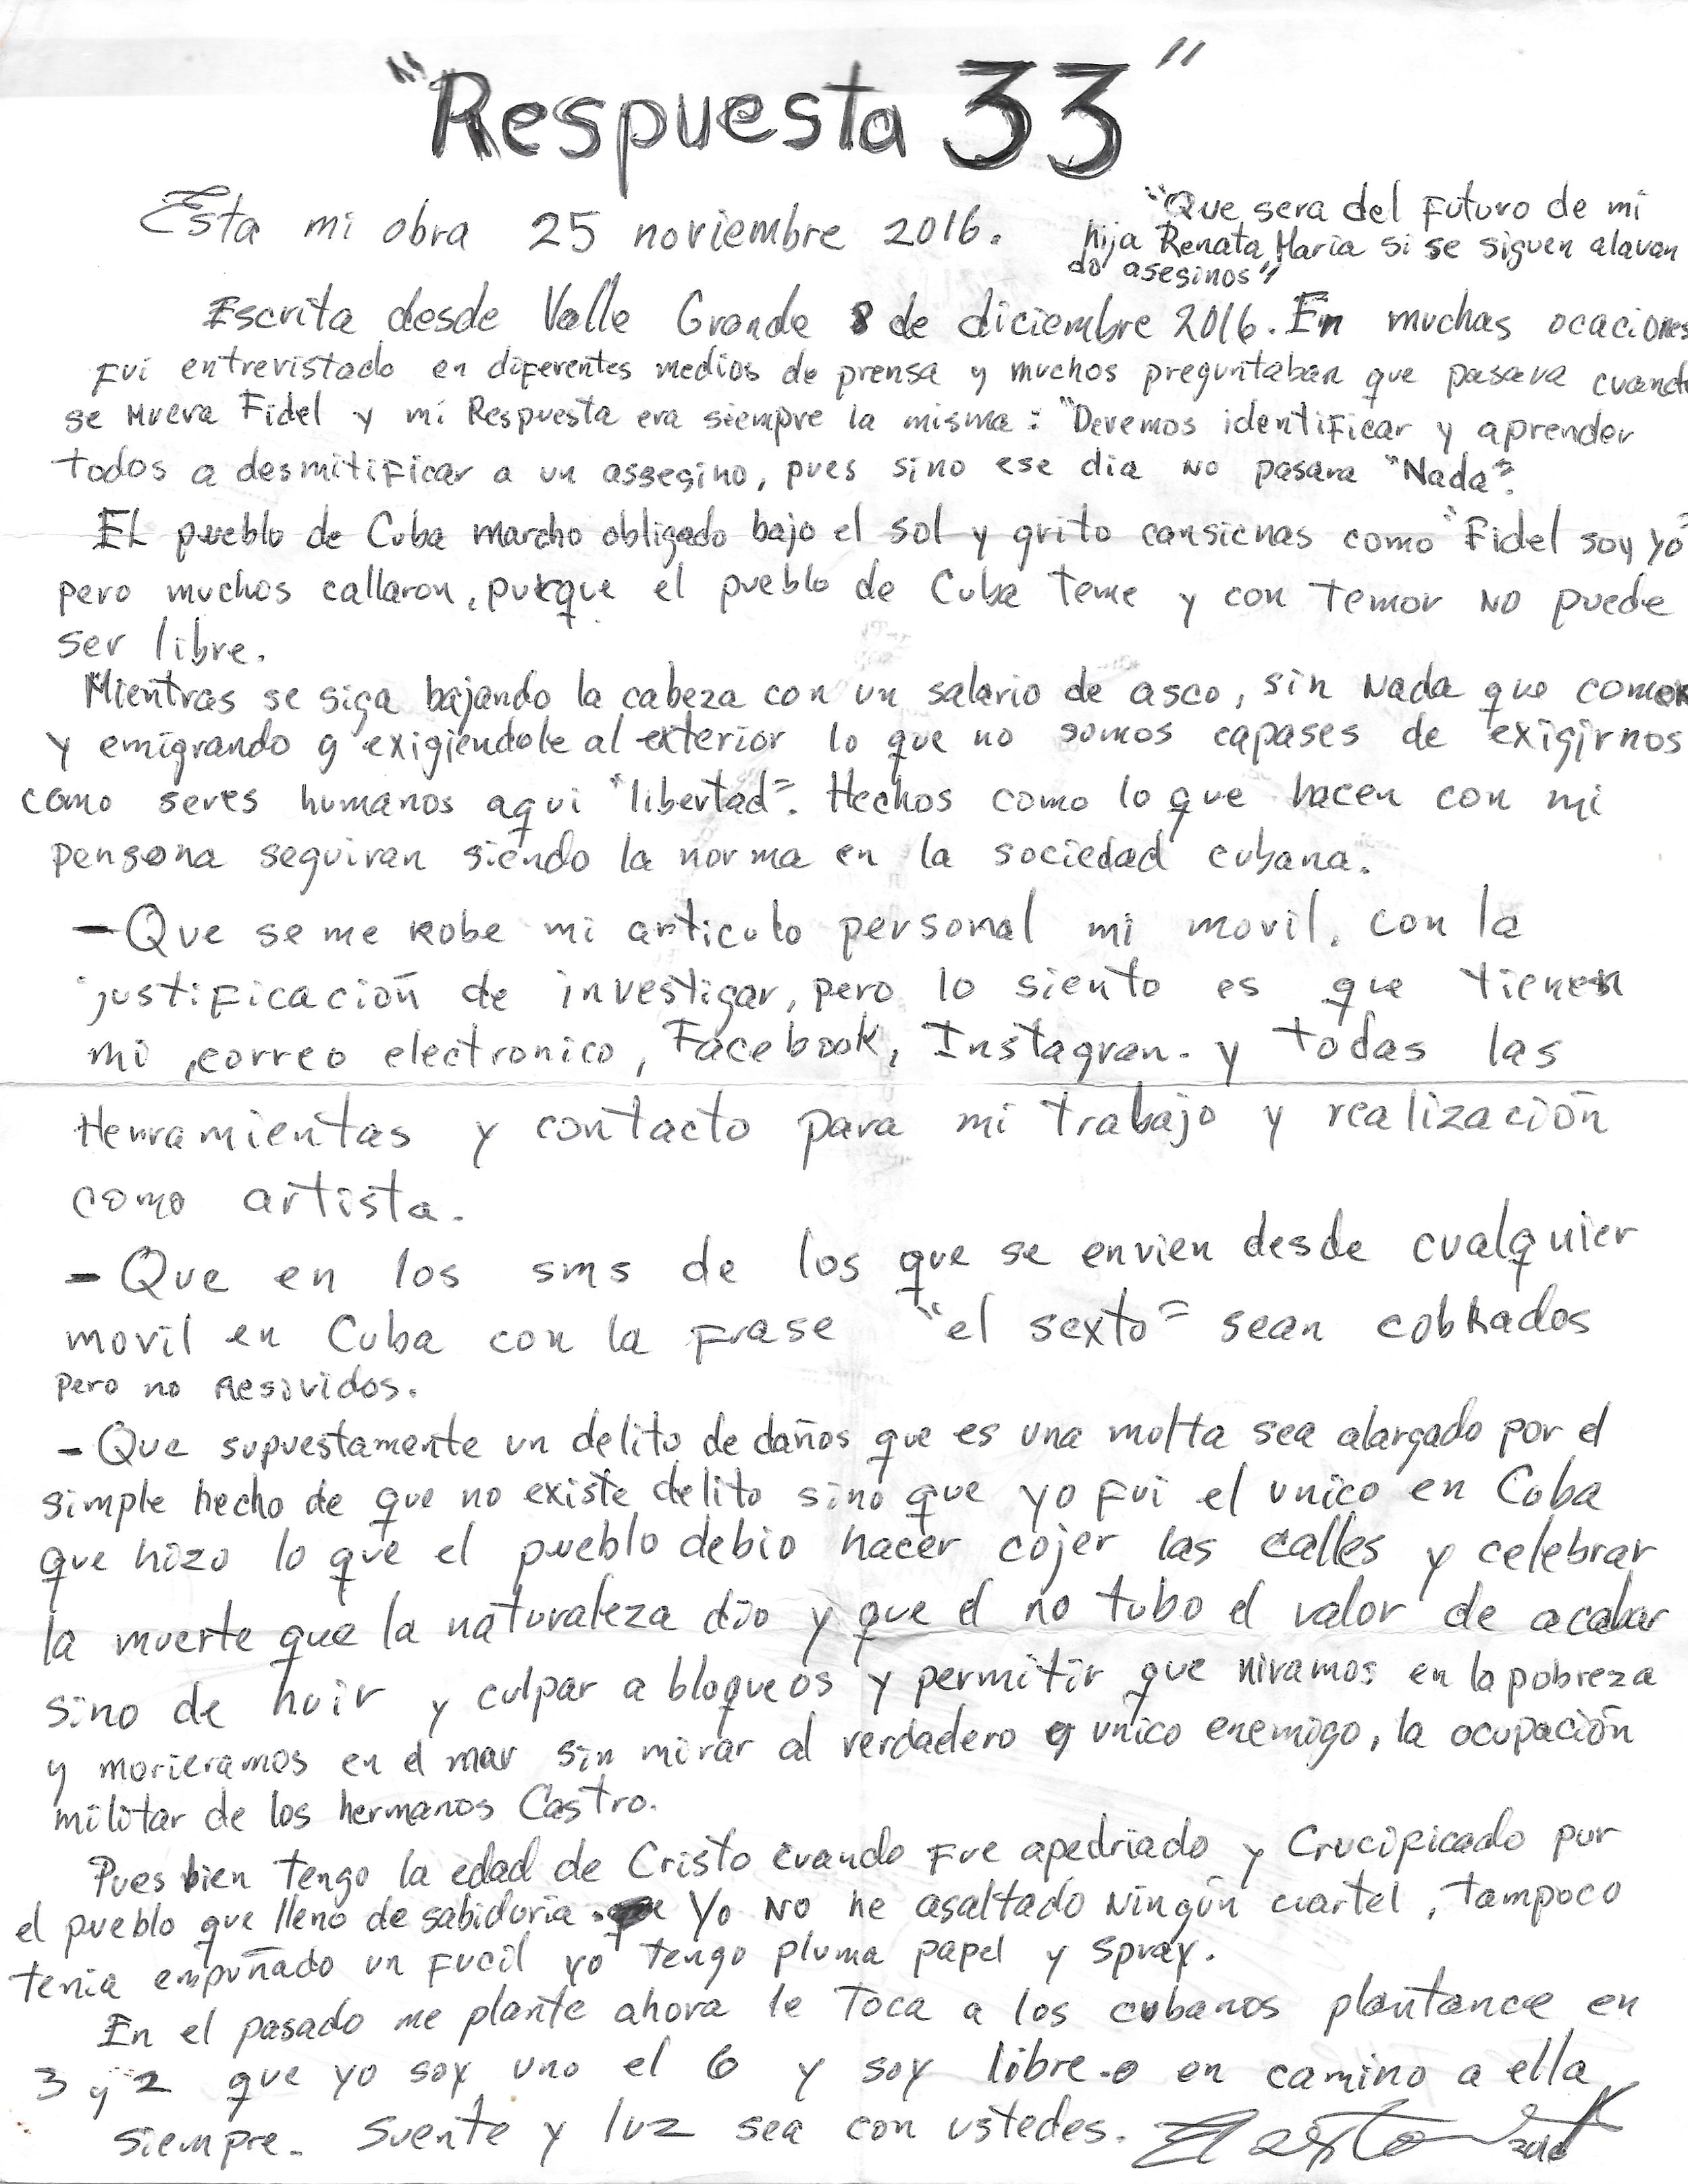 "Respuesta 33"
Esta mi obra 25 noviembre 2016.
"Que sera del Futuro de mi
hija Renata María si se siguen alavan
do asesinos"
Escrita desde Valle Grande 8 de diciembre 2016. En muchas ocaciones
Fui entrevistado en diferentes medios de prensa y muchos preguntaban que pasava cuando
se Mueva Fidel y mi Respuesta era siempre la misma: "Devemos identificar y aprender
todos a desmitificar a un assesino, pues sino ese dia no pasara "Nada".
EL pueblo de Cuba marcho obligado bajo el sol y grito cansignas como "Fidel soy yo"
pero muchos callaron, purque el pueblo de Cuba teme y con temor no puede
ser libre.
Mientras se siga bajando la cabeza con un salario de asco, sin Nada que comer
y emigrando y exigiendole al exterior lo que no somos capases de exigirnos
como seres humanos aqui "libertad". Hechos como lo que hacen con mi
persona seguiran siendo la norma en la sociedad cubana.
- Que se me robe mi articulo personal mi movil, con la
justificación de investigar, pero lo siento es que tienen
mi correo electronico, Facebook, Instagran. y todas las
Herramientas y contacto para mi trabajo y realización
como artista.
- Que en los sms de los que se envien desde cualquier
movil en Cuba con la Frase "el sexto" sean cobrados
pero no Resividos.
- Que supuestamente un delito de daños que es una multa sea alargado por el
simple hecho de que no existe delito sino que yo Fui el unico en Cuba
que hizo lo que el pueblo debio hacer cojer las calles y celebrar
la muerte que la naturaleza dio y que el no tubo el valor de acabar
sino de huir y culpar a bloqueos y permitir que vivamos en la pobreza
y morieramos en el mar sin mirar al verdadero y unico enemigo, la ocupación
militar de los hermanos Castro.
Pues bien tengo la edad de Cristo cuando Fue apedriado y Crucificado pur
el pueblo que lleno de sabiduria. Yo No he asaltado Ningún cuartel, tampoco
tenia empuñado un Fucil yo tengo pluma papel y spray.
En el pasado me plante ahora le Toca a los cubanos plantance en
3 y 2 que yo soy uno el 6 y soy libre o en camino a ella
siempre. Suente y luz sea con ustedes. El Sexto 2016